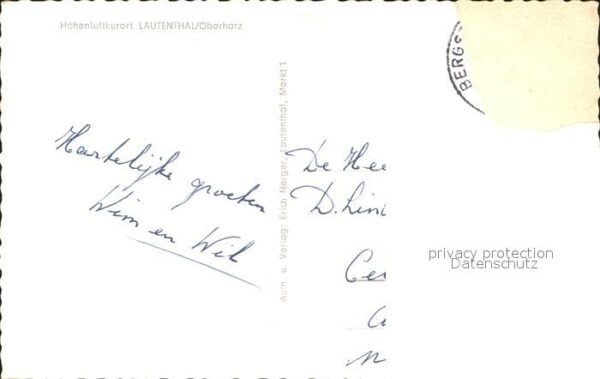 Höhenluftkurort LAUTENTHAL/Oberharz
Hartelijke groeten
Wim en Wil
Aufn. u. Verlag: Erich Nerger, Lautenthal, Markt 1
BERGS
De Hee
D. Lin
Ce
privacy protection
Datenschutz